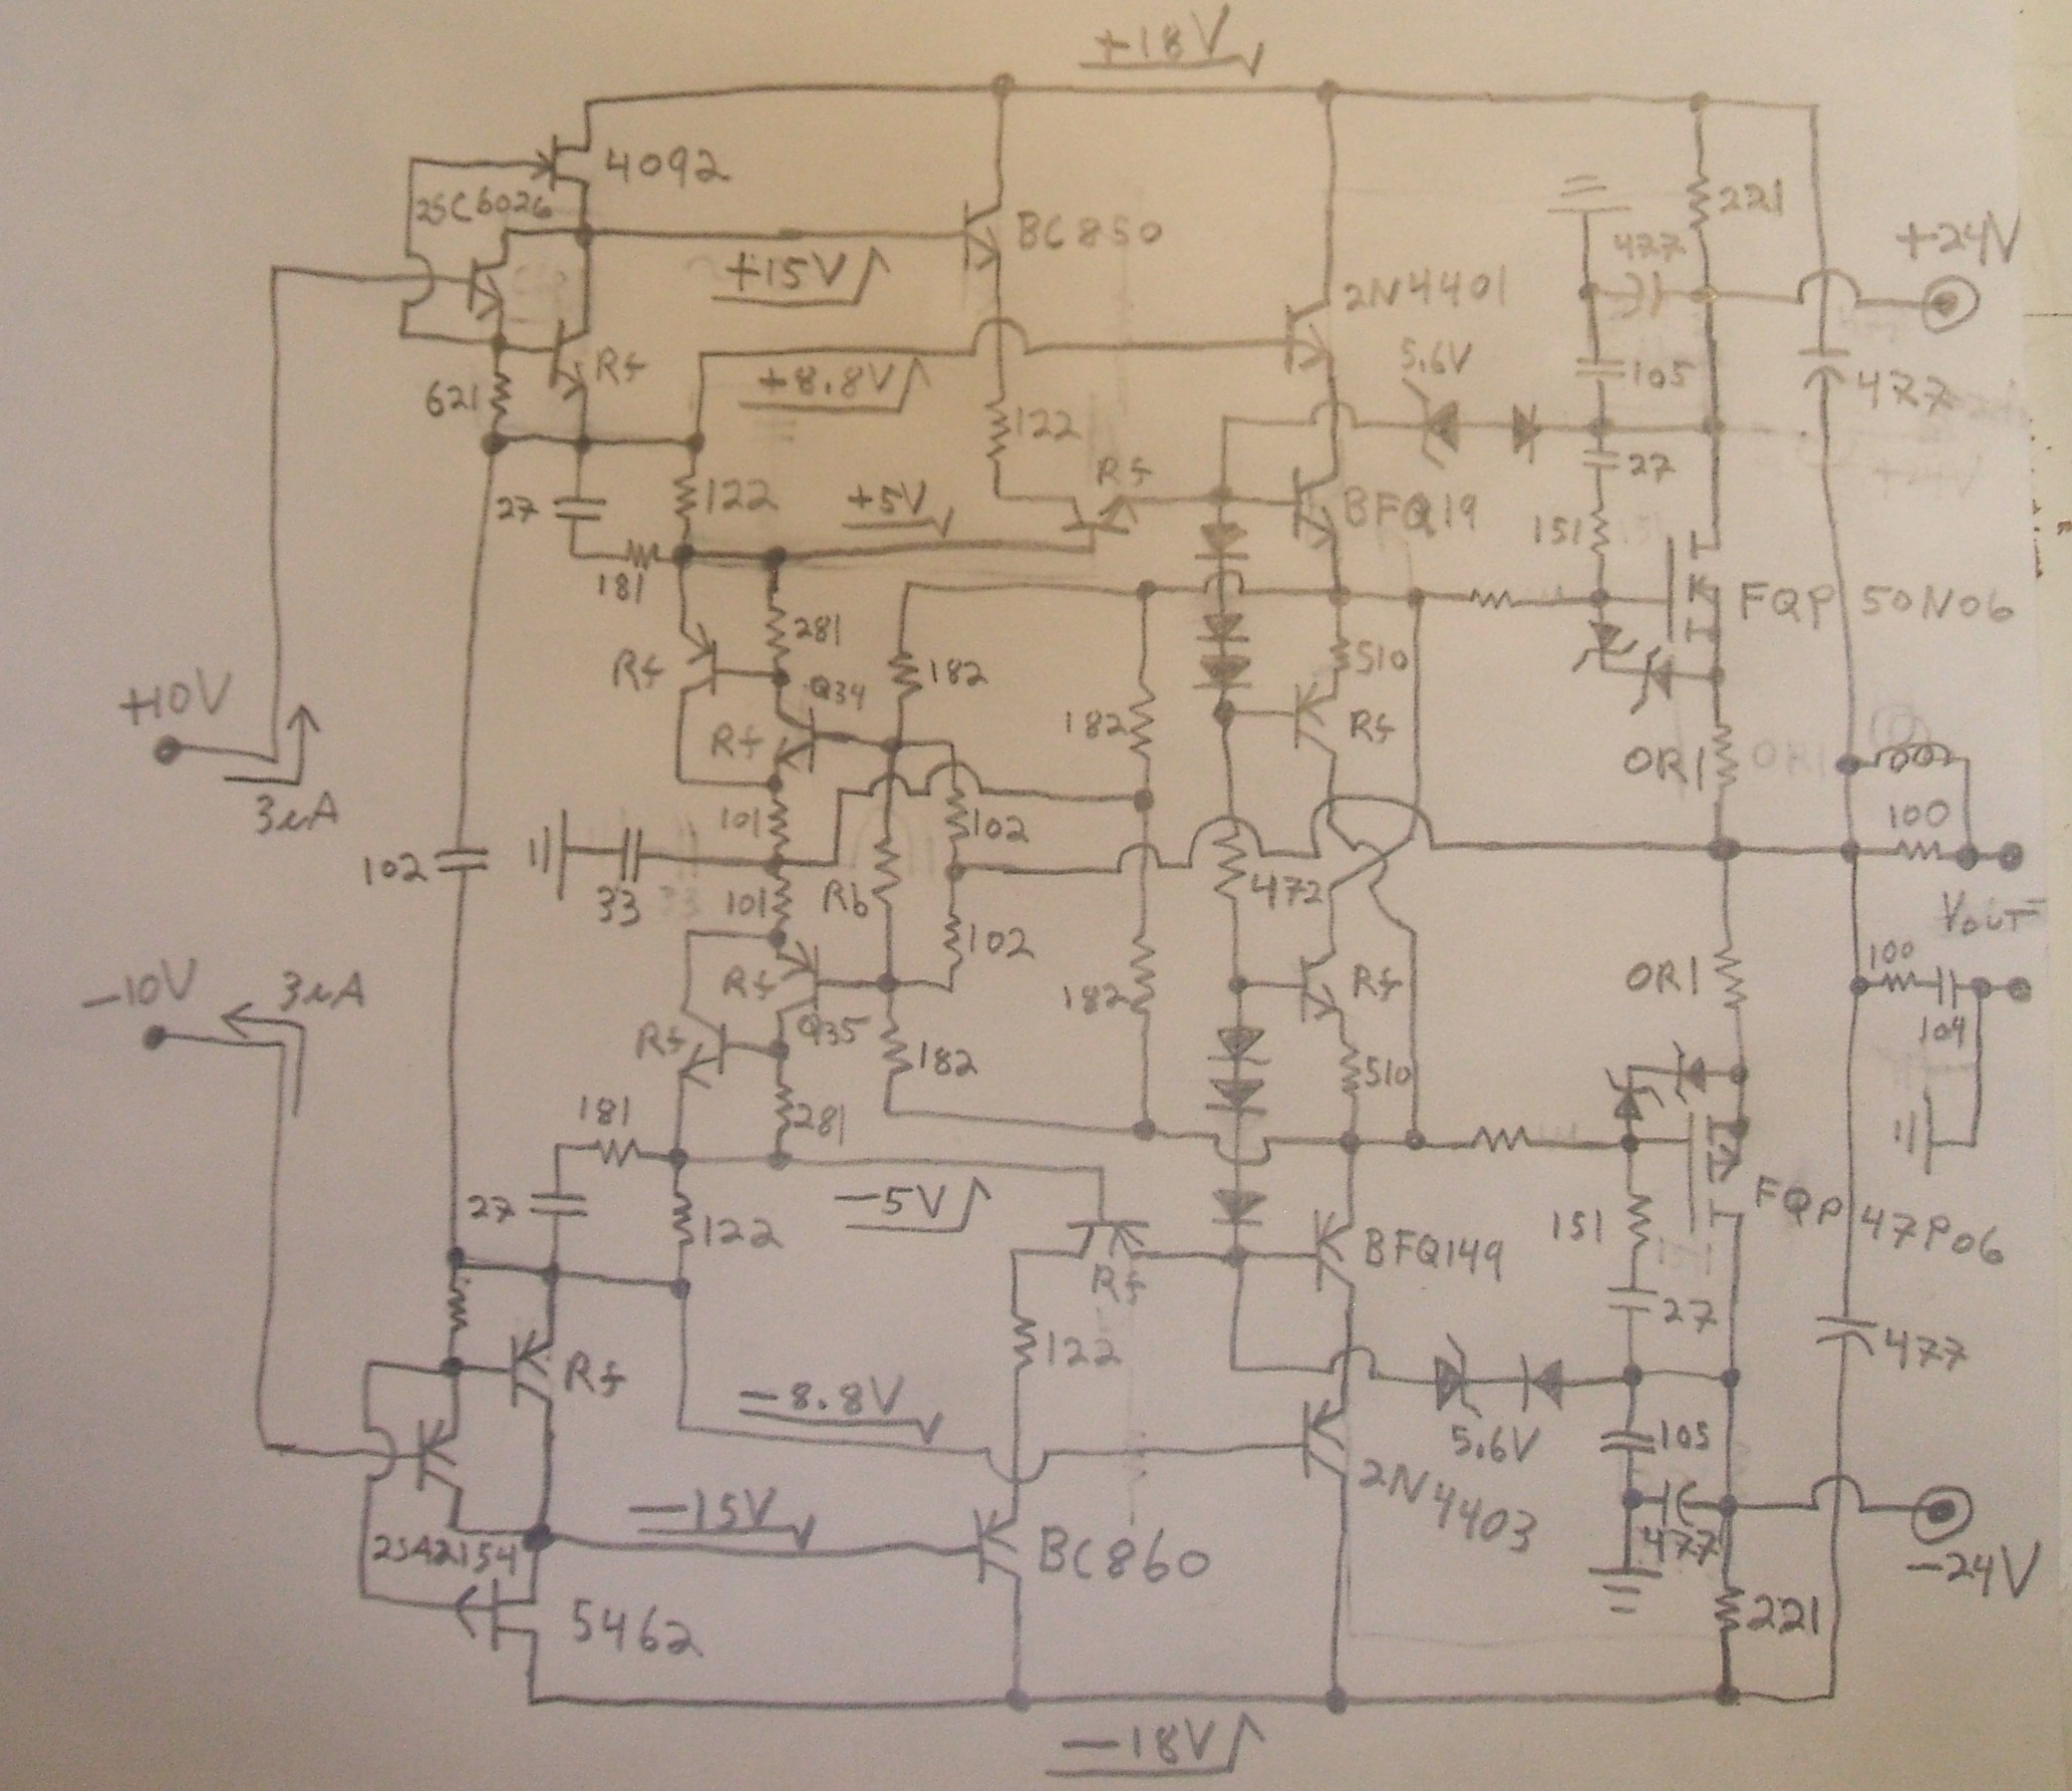 +18V
4092
2SC6026
BC850
221
477
+24V
+15V
2N4401
Rf
5.6V
105
477
621
+8.8V
122
Rf
27
27
122
+5V
BFQ19
151
181
FQP 50N06
281
Rf
182
510
Q34
+10V
182
Rf
Rf
0R1
3uA
101
102
100
102
33
101
Rb
472
Vout
102
100
-10V
3uA
Rf
182
Rf
0R1
Q35
104
Rf
182
510
181
281
27
-5V
151
FQP 47P06
122
BFQ149
Rf
27
122
477
Rf
-8.8V
5.6V
105
2N4403
-15V
477
2SA2154
BC860
-24V
5462
221
-18V